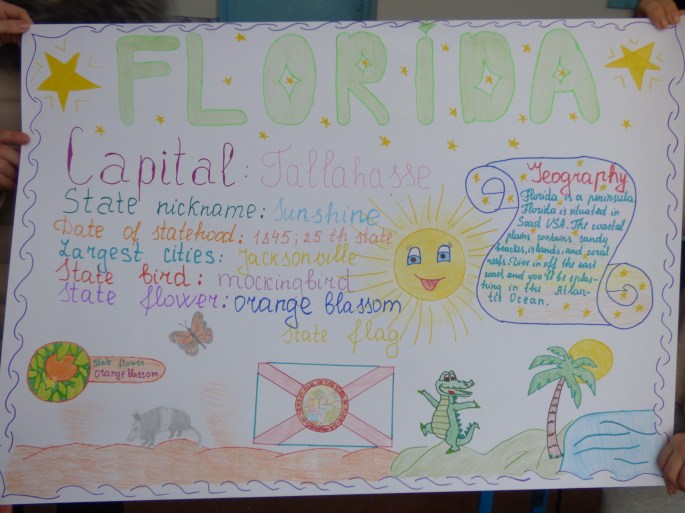 FLORIDA
Capital: Tallahasse
State nickname: Sunshine
Date of statehood: 1845; 25 th state
Largest cities: Jacksonville
State bird: mockingbird
State flower: orange blassom
State flag
Geography
Florida is a peninsula
Florida is situated in
Soud USA. The coastal
plains contains sandy
beaches, islands, and coral
reefs. in off the east
coast and you'll be splas-
hing in the Atlan-
tic Ocean.
State flower
orange blassom